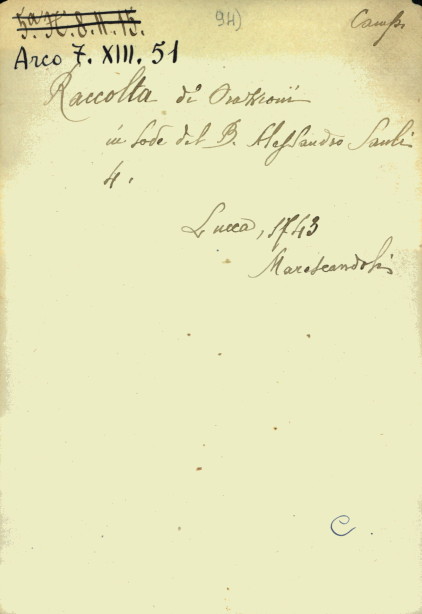 5ª X. 8. II. 15.
94)
Arco 7. XIII. 51
Raccolta di Orazioni
in lode del B. Alessandro Sauli
4.
Lucca, 1743
Marescandoli
C.